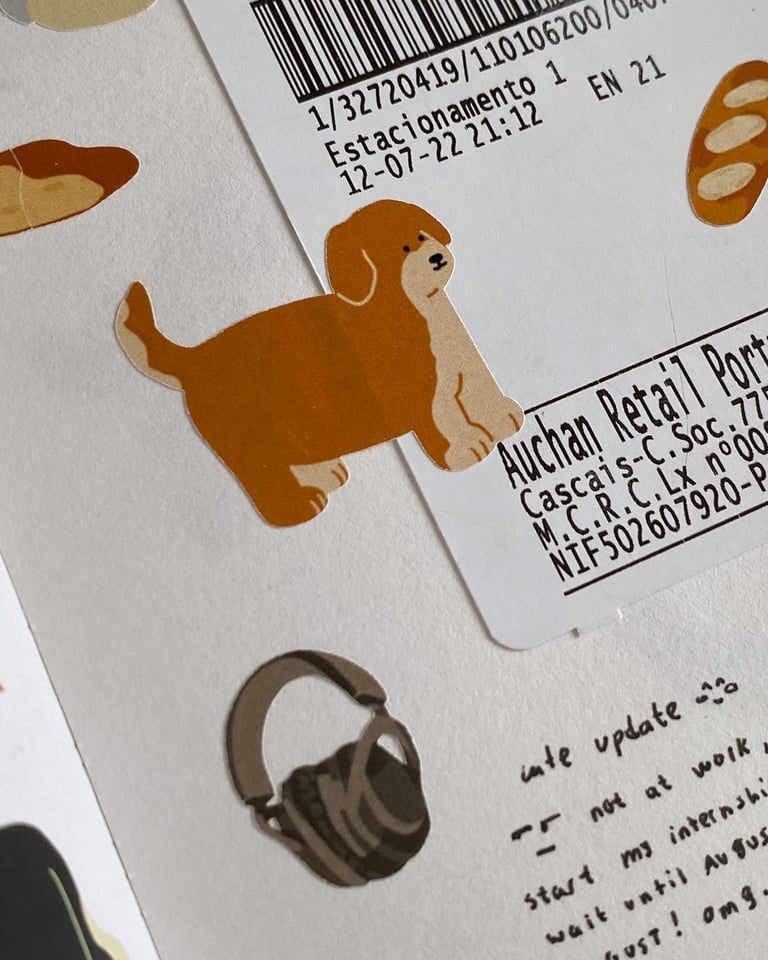 1/32720419/110106200/040
Estacionamento 1
12-07-22 21:12
EN 21
Auchan Retail Port
Cascais-C.Soc.77
M.C.R.C.Lx nº00
NIF502607920-P
update
not at work,
start my internshi
wait until Augus
gust! omg.